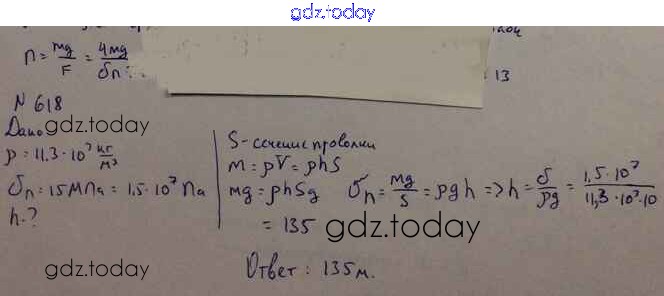 gdz.today
n = mg/F = 4mg/σn
= 13
N 618
Дано
gdz.today
ρ = 11,3·10³ кг/м³
σn = 15 МПа = 1,5·10⁷ Па
h - ?
S - сечение проволки
m = ρV = ρhS
mg = ρhSg σn = mg/S = ρgh => h = σ/ρg = 1,5·10⁷/11,3·10³·10
= 135
gdz.today
gdz.today
Ответ: 135 м.